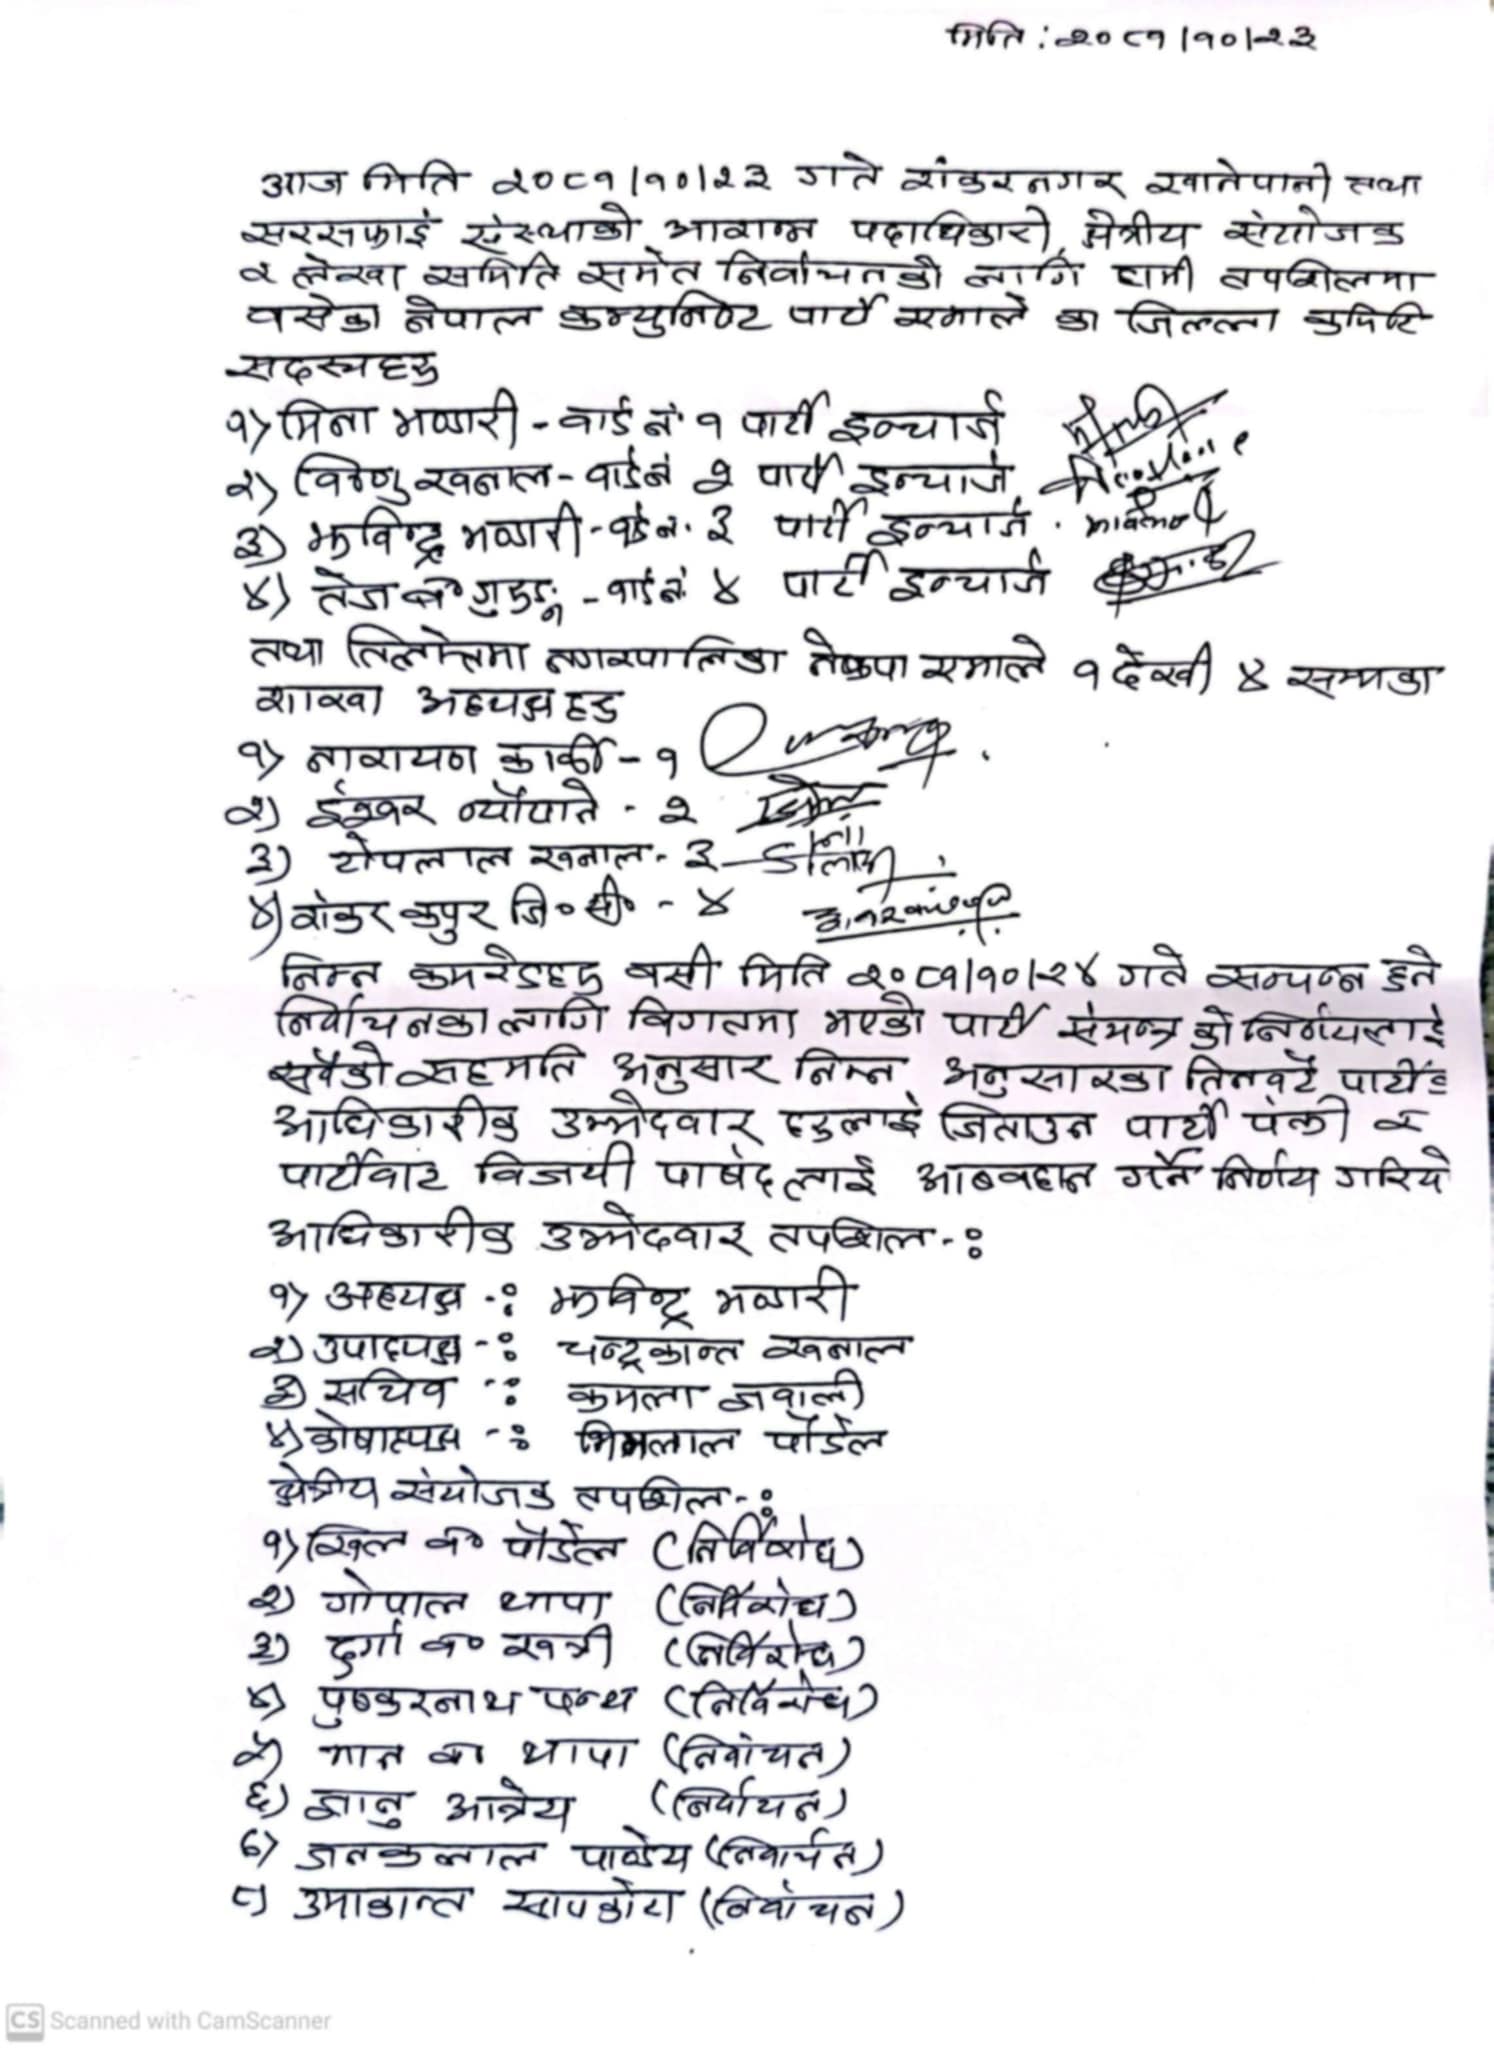 मिति : २०८१।१०।२३
आज मिति २०८१।१०।२३ गते शंकरनगर खानेपानी तथा
सरसफाई संस्थाको आसन्न पदाधिकारी, क्षेत्रीय संयोजक
र लेखा समिति समेत निर्वाचनको लागि हामी तपशिलमा
बसेका नेपाल कम्युनिष्ट पार्टी एमाले का जिल्ला कमिटि
सदस्यहरु
१) मिना भण्डारी - वार्ड नं. १ पार्टी इन्चार्ज
२) विष्णु खनाल - वार्ड नं २ पार्टी इन्चार्ज
३) झविन्द्र भण्डारी - वार्ड नं. ३ पार्टी इन्चार्ज .
४) तेज ब० गुरुङ्ग - वार्ड नं. ४ पार्टी इन्चार्ज
तथा तिलोत्तमा नगरपालिका नेकपा एमाले १ देखी ४ सम्मका
शाखा अध्यक्षहरु
१) नारायण कार्की - १
२) ईश्वर न्यौपाने - २
३) टोपलाल खनाल - ३
४) शंकर कपुर जि० सी० - ४
निम्न कमरेडहरु बसी मिति २०८१।१०।२४ गते सम्पन्न हुने
निर्वाचनका लागि विगतमा भएको पार्टी संयन्त्र को निर्णयलाई
सबैको सहमति अनुसार निम्न अनुसारका तिनवटै पार्टीका
आधिकारीक उम्मेदवार हरुलाई जिताउन पार्टी पंक्ती र
पार्टीबाट विजयी पार्षदलाई आवहान गर्ने निर्णय गरियो
आधिकारीक उम्मेदवार तपशिल -:
१) अध्यक्ष -: झविन्द्र भण्डारी
२) उपाध्यक्ष -: चन्द्रकान्त खनाल
३) सचिव -: कमला ज्ञवाली
४) कोषाध्यक्ष -: भिमलाल पौडेल
क्षेत्रीय संयोजक तपशिल -:
१) खिल ब० पौडेल (निर्विरोध)
२) गोपाल थापा (निर्विरोध)
३) दुर्गा ब० खत्री (निर्विरोध)
४) पुष्करनाथ पन्थ (निर्विरोध)
५) मान ब० थापा (निर्वाचन)
६) ज्ञानु आत्रेय (निर्वाचन)
७) जनकलाल पाण्डेय (निर्वाचन)
८) उमाकान्त सापकोटा (निर्वाचन)
CS Scanned with CamScanner